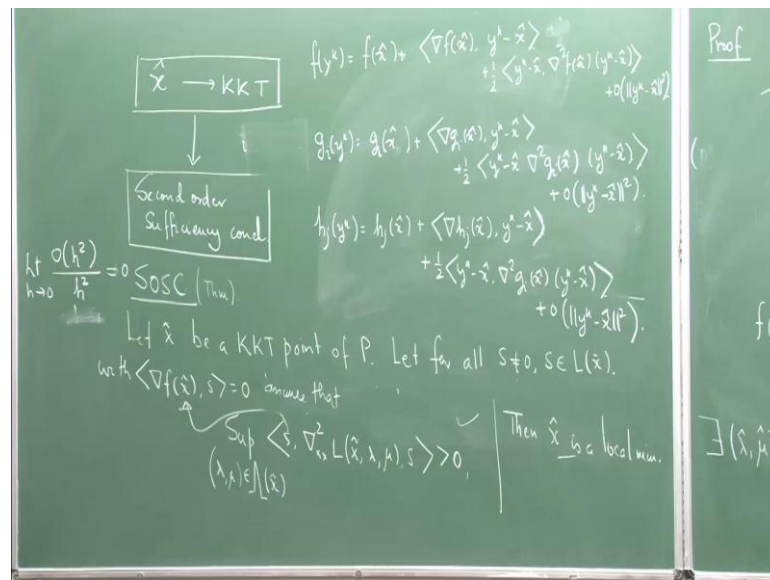 x̂ → KKT
Second order
Sufficiency cond
lt h→0 o(h²)/h² = 0
SOSC (Thm)
f(yᵏ) = f(x̂) + ⟨∇f(x̂), yᵏ-x̂⟩
+ ½⟨yᵏ-x̂, ∇²f(x̂)(yᵏ-x̂)⟩
+ o(||yᵏ-x̂||²)
gᵢ(yᵏ) = gᵢ(x̂) + ⟨∇gᵢ(x̂), yᵏ-x̂⟩
+ ½⟨yᵏ-x̂ ∇²gᵢ(x̂) (yᵏ-x̂)⟩
+ o(||yᵏ-x̂||²).
hⱼ(yᵏ) = hⱼ(x̂) + ⟨∇hⱼ(x̂), yᵏ-x̂⟩
+ ½⟨yᵏ-x̂, ∇²gᵢ(x̂)(yᵏ-x̂)⟩
+ o(||yᵏ-x̂||²).
Let x̂ be a KKT point of P. Let for all s≠0, s∈ L(x̂).
with ⟨∇f(x̂), s⟩ = 0 assume that
Sup ⟨s, ∇²ₓₓ L(x̂, λ, μ), s⟩ > 0,
(λ,μ)∈Λ(x̂)
Then x̂ is a local min.
Proof
(
f(
∃(λ̂, μ̂